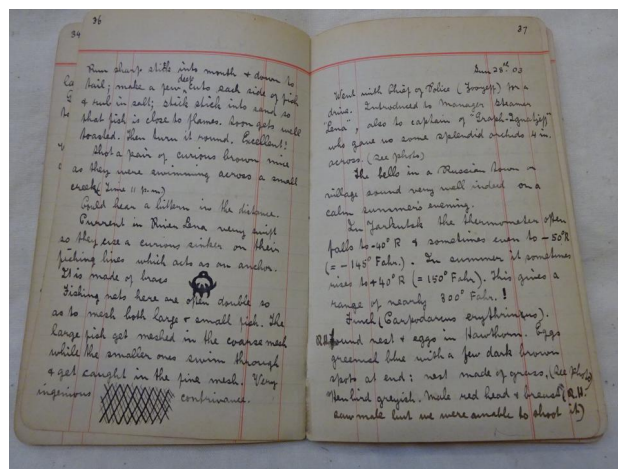 34
36
Run sharp stick into mouth & down to
tail; make a few deep cuts each side of fish
& rub in salt; stick stick into sand so
that fish is close to flames. Soon gets well
toasted. Then turn it round. Excellent!
Shot a pair of curious brown mice
as they were swimming across a small
creek (Time 11 p.m)
Could hear a bittern in the distance.
Current in River Lena very swift
so they use a curious sinker on their
fishing lines which acts as an anchor.
It is made of brass
Fishing nets here are often double so
as to mesh both large & small fish. The
large fish get meshed in the coarse mesh
while the smaller ones swim through
& get caught in the fine mesh. Very
ingenious contrivance.
37
28th 03
Went with Chief of Police () for a
drive. Introduced to Manager Steamer
"Lena", also to captain of "Graph-Ignatieff"
who gave us some splendid orchids 4 in.
across. (See photo)
The bells in a Russian town or
village sound very well indeed on a
calm summer's evening.
In Jarkutsk the thermometer often
falls to -40° R & sometimes even to -50°R
(= -145° Fahr.). In summer it sometimes
rises to +40° R (= 150° Fahr). This gives a
range of nearly 300° Fahr.!
Finch (Carpodacus erythrinus).
Found nest & eggs in Hawthorn. Eggs
greenish blue with a few dark brown
spots at end: nest made of grass, (See photo)
Hen bird greyish. Male red head & breast (R.H.
saw male but we were unable to shoot it)